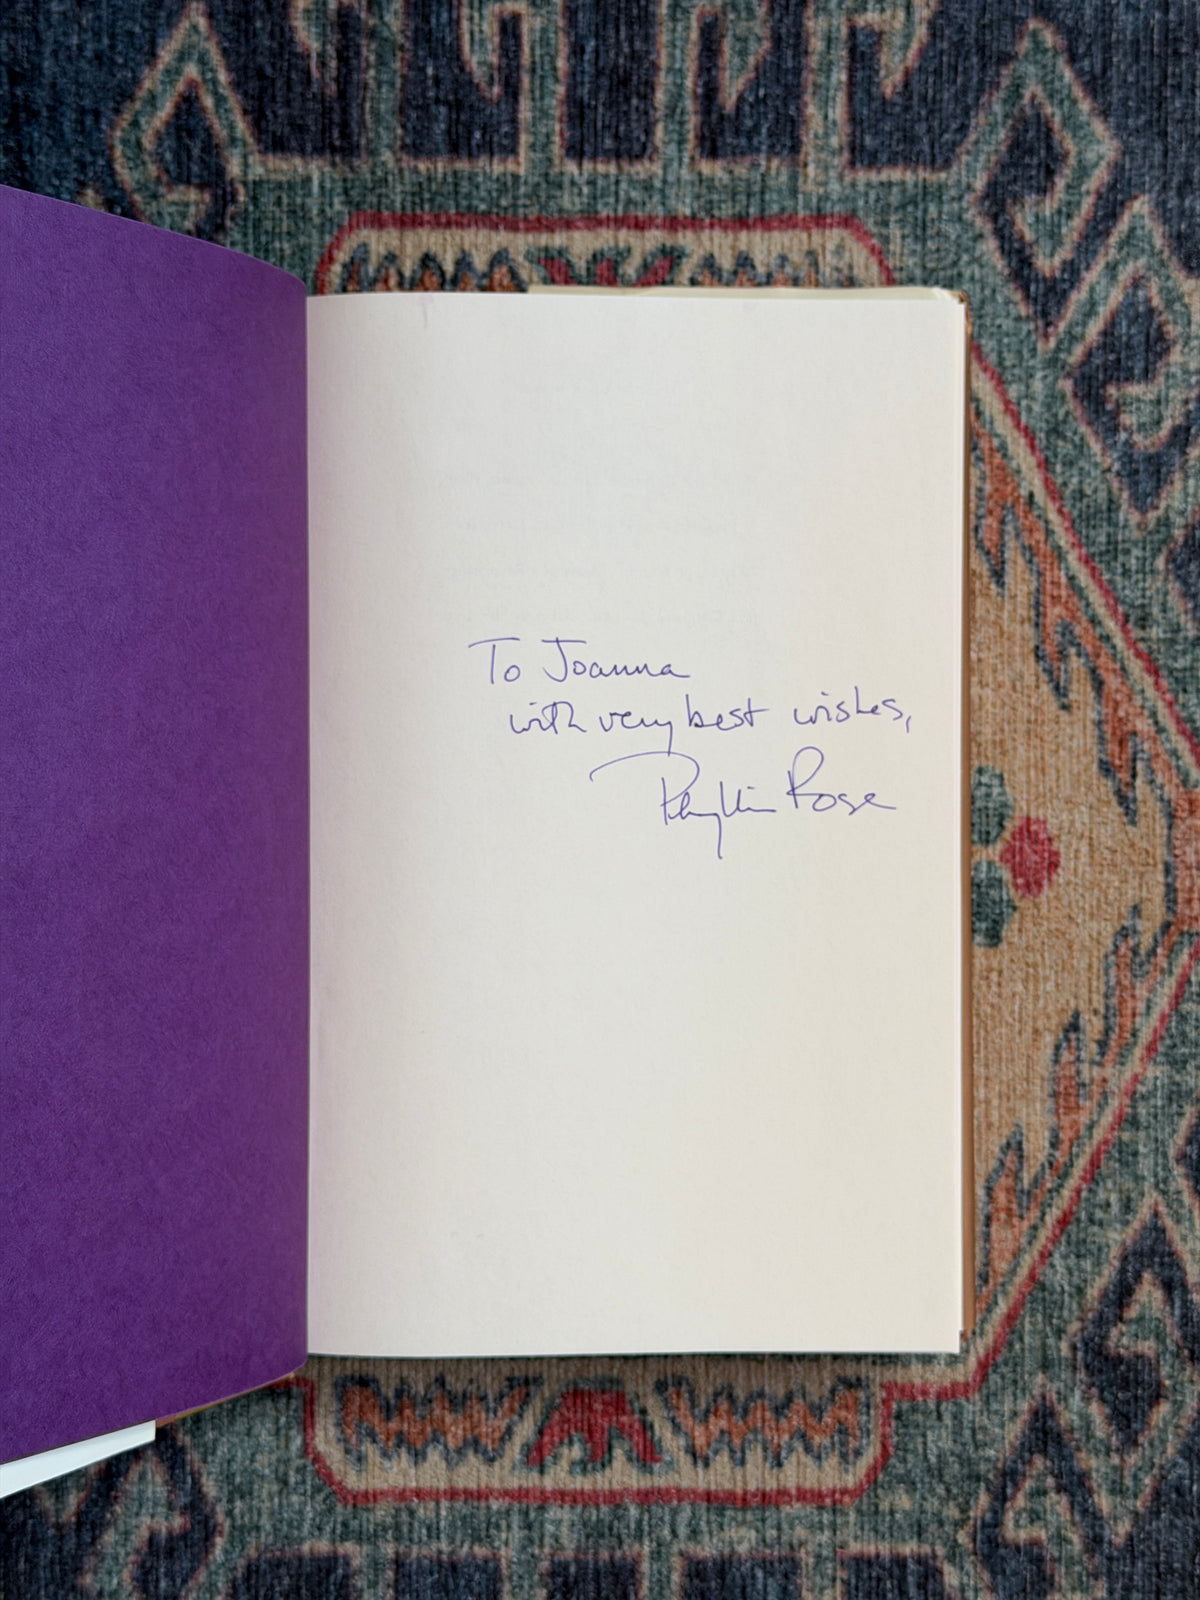 To Joanna
with very best wishes,
Phyllis Rose